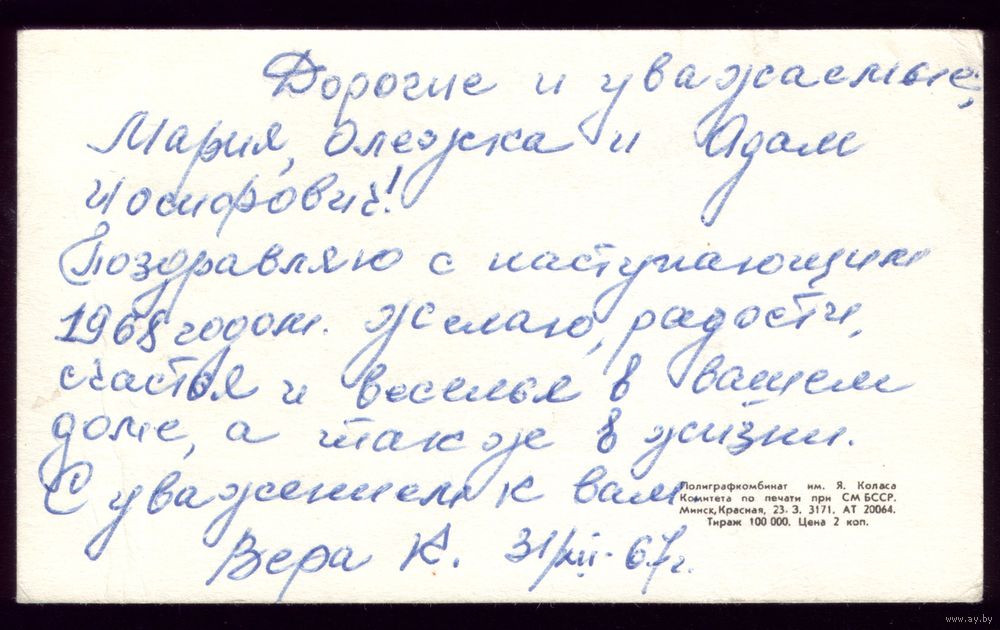 Дорогие и уважаемые,
Мария, Олежка и Адам
Иосифович!
Поздравляю с наступающим
1968 годом. Желаю, радости,
счастья и веселья в вашем
доме, а также в жизни.
С уважением к вам.
Вера К. 31/XII-67г.
Полиграфкомбинат им. Я. Коласа
Комитета по печати при СМ БССР.
Минск, Красная, 23. З. 3171. АТ 20064.
Тираж 100 000. Цена 2 коп.
www.ay.by